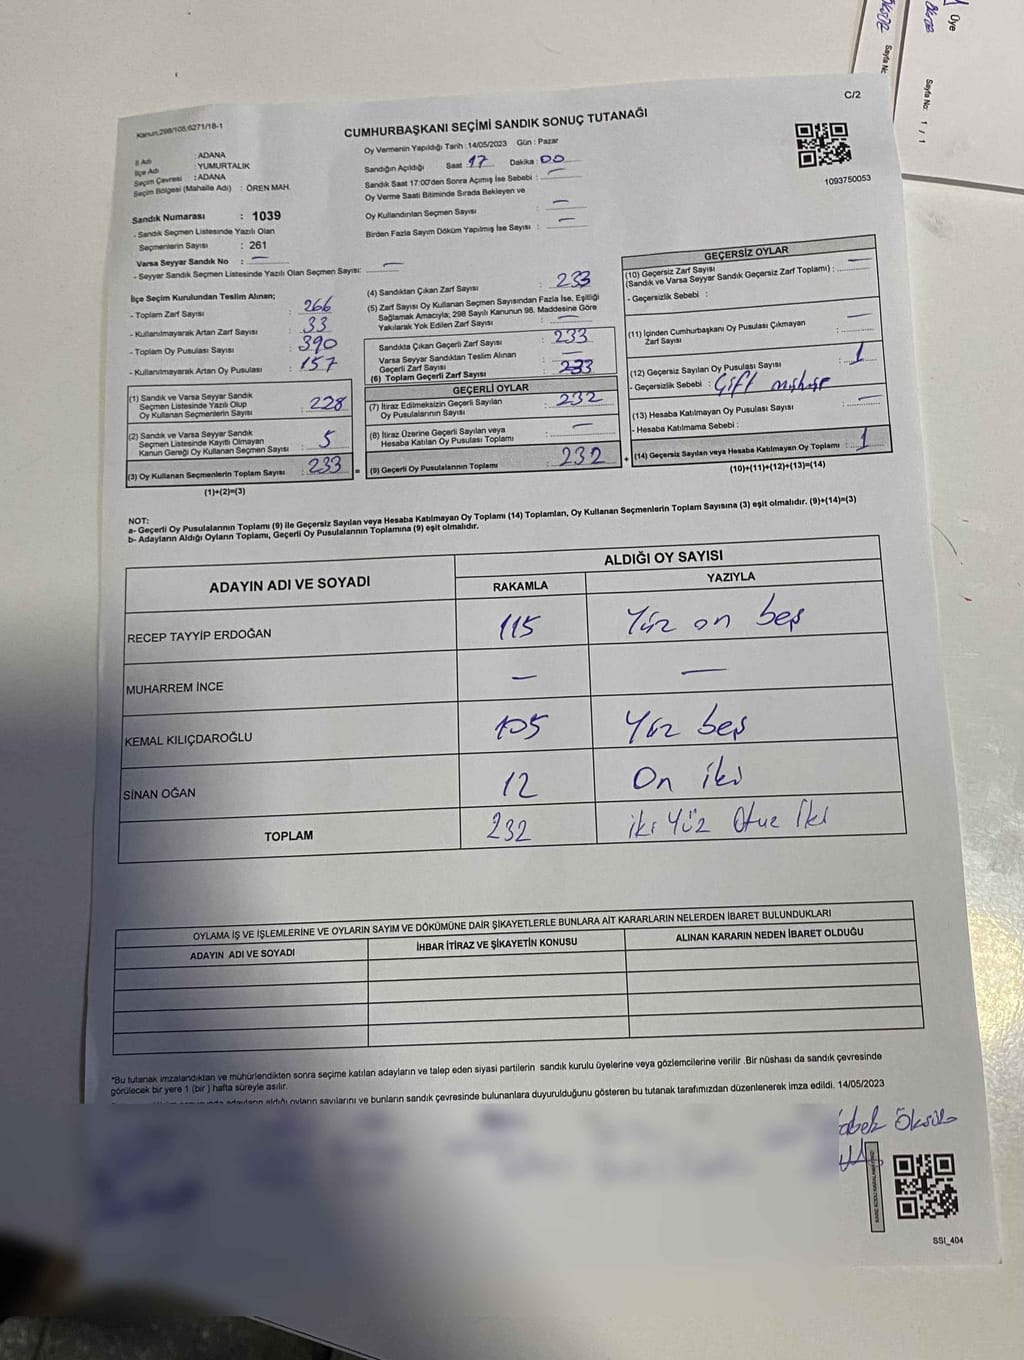 Üye
Sayfa No: 1 / 1
Sayfa No
C/2
Kanun:298/105;6271/18-1
CUMHURBAŞKANI SEÇİMİ SANDIK SONUÇ TUTANAĞI
1093750053
İl Adı : ADANA
İlçe Adı : YUMURTALIK
Seçim Çevresi : ADANA
Seçim Bölgesi (Mahalle Adı) : ÖREN MAH.
Sandık Numarası : 1039
- Sandık Seçmen Listesinde Yazılı Olan
Seçmenlerin Sayısı : 261
Varsa Seyyar Sandık No : —
- Seyyar Sandık Seçmen Listesinde Yazılı Olan Seçmen Sayısı: —
Oy Vermenin Yapıldığı Tarih :14/05/2023 Gün : Pazar
Sandığın Açıldığı Saat 17 Dakika : 00
Sandık Saat 17:00'den Sonra Açımış İse Sebebi : —
Oy Verme Saati Bitiminde Sırada Bekleyen ve
Oy Kullandırılan Seçmen Sayısı : —
Birden Fazla Sayım Döküm Yapılmış İse Sayısı : —
İlçe Seçim Kurulundan Teslim Alınan;
- Toplam Zarf Sayısı : 266
- Kullanılmayarak Artan Zarf Sayısı : 33
- Toplam Oy Pusulası Sayısı : 390
- Kullanılmayarak Artan Oy Pusulası : 157
(1) Sandık ve Varsa Seyyar Sandık
Seçmen Listesinde Yazılı Olup
Oy Kullanan Seçmenlerin Sayısı : 228
(2) Sandık ve Varsa Seyyar Sandık
Seçmen Listesinde Kayıtlı Olmayan
Kanun Gereği Oy Kullanan Seçmen Sayısı : 5
(3) Oy Kullanan Seçmenlerin Toplam Sayısı : 233
(1)+(2)=(3)
(4) Sandıktan Çıkan Zarf Sayısı : 233
(5) Zarf Sayısı Oy Kullanan Seçmen Sayısından Fazla İse, Eşitliği
Sağlamak Amacıyla; 298 Sayılı Kanunun 98. Maddesine Göre
Yakılarak Yok Edilen Zarf Sayısı : —
Sandıkta Çıkan Geçerli Zarf Sayısı : 233
Varsa Seyyar Sandıktan Teslim Alınan
Geçerli Zarf Sayısı : —
(6) Toplam Geçerli Zarf Sayısı : 233
GEÇERLİ OYLAR
(7) İtiraz Edilmeksizin Geçerli Sayılan
Oy Pusulalarının Sayısı : 232
(8) İtiraz Üzerine Geçerli Sayılan veya
Hesaba Katılan Oy Pusulası Toplamı : —
= (9) Geçerli Oy Pusulalarının Toplamı : 232 +
GEÇERSİZ OYLAR
(10) Geçersiz Zarf Sayısı
(Sandık ve Varsa Seyyar Sandık Geçersiz Zarf Toplamı) : —
- Geçersizlik Sebebi :
(11) İçinden Cumhurbaşkanı Oy Pusulası Çıkmayan
Zarf Sayısı : —
(12) Geçersiz Sayılan Oy Pusulası Sayısı : 1
- Geçersizlik Sebebi : Çift
(13) Hesaba Katılmayan Oy Pusulası Sayısı : —
- Hesaba Katılmama Sebebi :
(14) Geçersiz Sayılan veya Hesaba Katılmayan Oy Toplamı : 1
(10)+(11)+(12)+(13)=(14)
NOT:
a- Geçerli Oy Pusulalarının Toplamı (9) ile Geçersiz Sayılan veya Hesaba Katılmayan Oy Toplamı (14) Toplamları, Oy Kullanan Seçmenlerin Toplam Sayısına (3) eşit olmalıdır. (9)+(14)=(3)
b- Adayların Aldığı Oyların Toplamı, Geçerli Oy Pusulalarının Toplamına (9) eşit olmalıdır.
ADAYIN ADI VE SOYADI ALDIĞI OY SAYISI
RAKAMLA YAZIYLA
RECEP TAYYİP ERDOĞAN 115 Yüz on beş
MUHARREM İNCE — —
KEMAL KILIÇDAROĞLU 105 Yüz beş
SİNAN OĞAN 12 On iki
TOPLAM 232 iki Yüz Otuz İki
OYLAMA İŞ VE İŞLEMLERİNE VE OYLARIN SAYIM VE DÖKÜMÜNE DAİR ŞİKAYETLERLE BUNLARA AİT KARARLARIN NELERDEN İBARET BULUNDUKLARI
ADAYIN ADI VE SOYADI İHBAR İTİRAZ VE ŞİKAYETİN KONUSU ALINAN KARARIN NEDEN İBARET OLDUĞU
*Bu tutanak imzalandıktan ve mühürlendikten sonra seçime katılan adayların ve talep eden siyasi partilerin sandık kurulu üyelerine veya gözlemcilerine verilir .Bir nüshası da sandık çevresinde
görülecek bir yere 1 (bir ) hafta süreyle asılır.
adayların aldığı oyların sayılarını ve bunların sandık çevresinde bulunanlara duyurulduğunu gösteren bu tutanak tarafımızdan düzenlenerek imza edildi. 14/05/2023
SSI_404